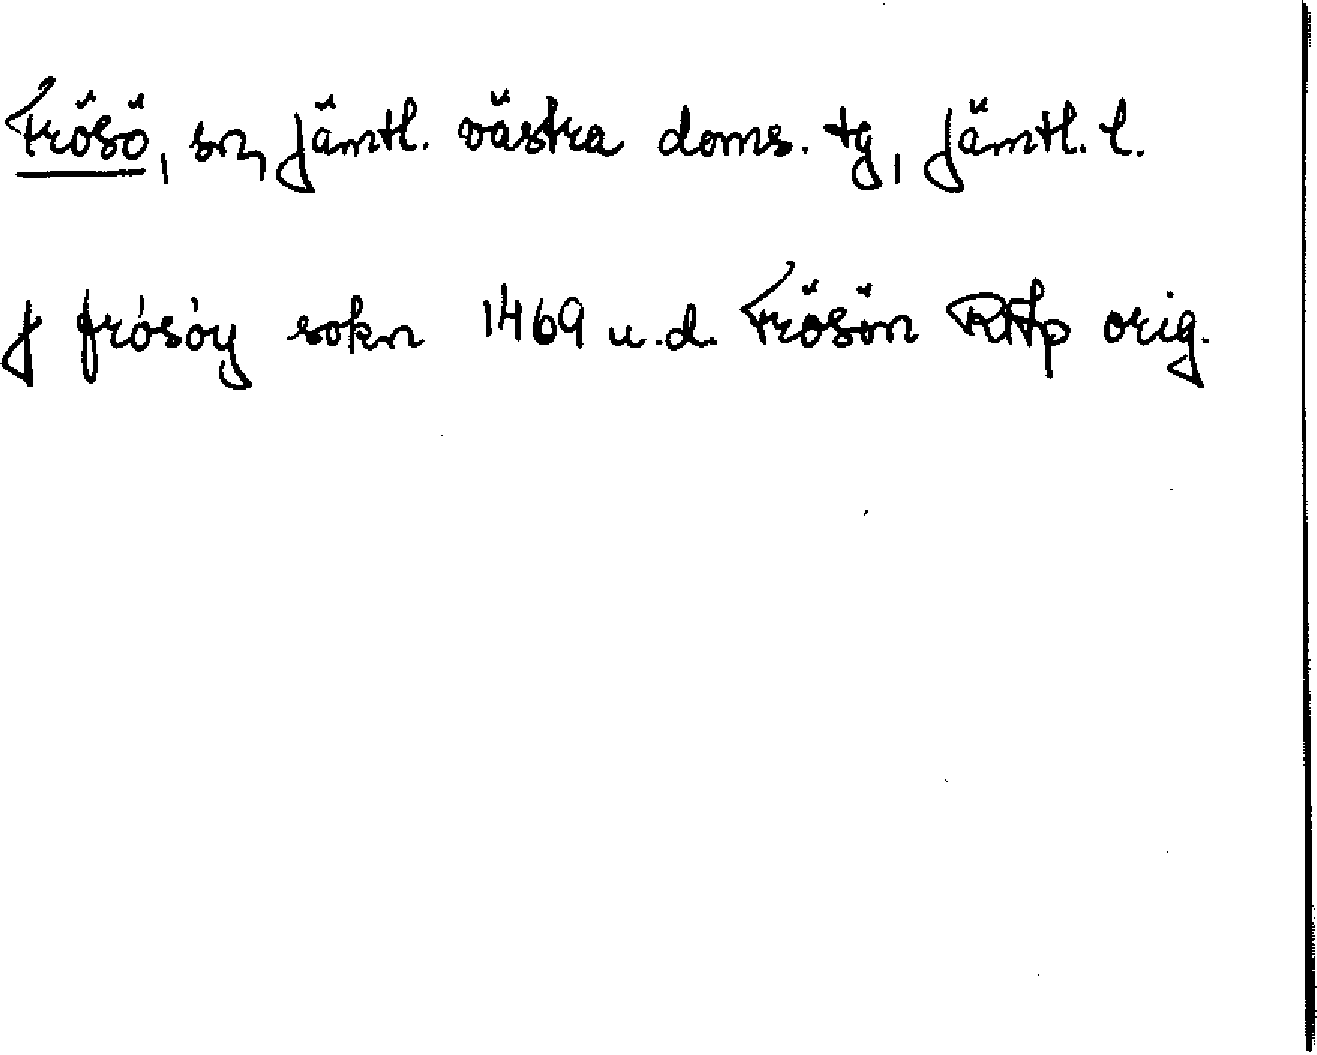 Frösö, sn, Jämtl. västra doms. tg, Jämtl. l.
J frósóy sokn 1469 u.d. Frösön RAp orig.